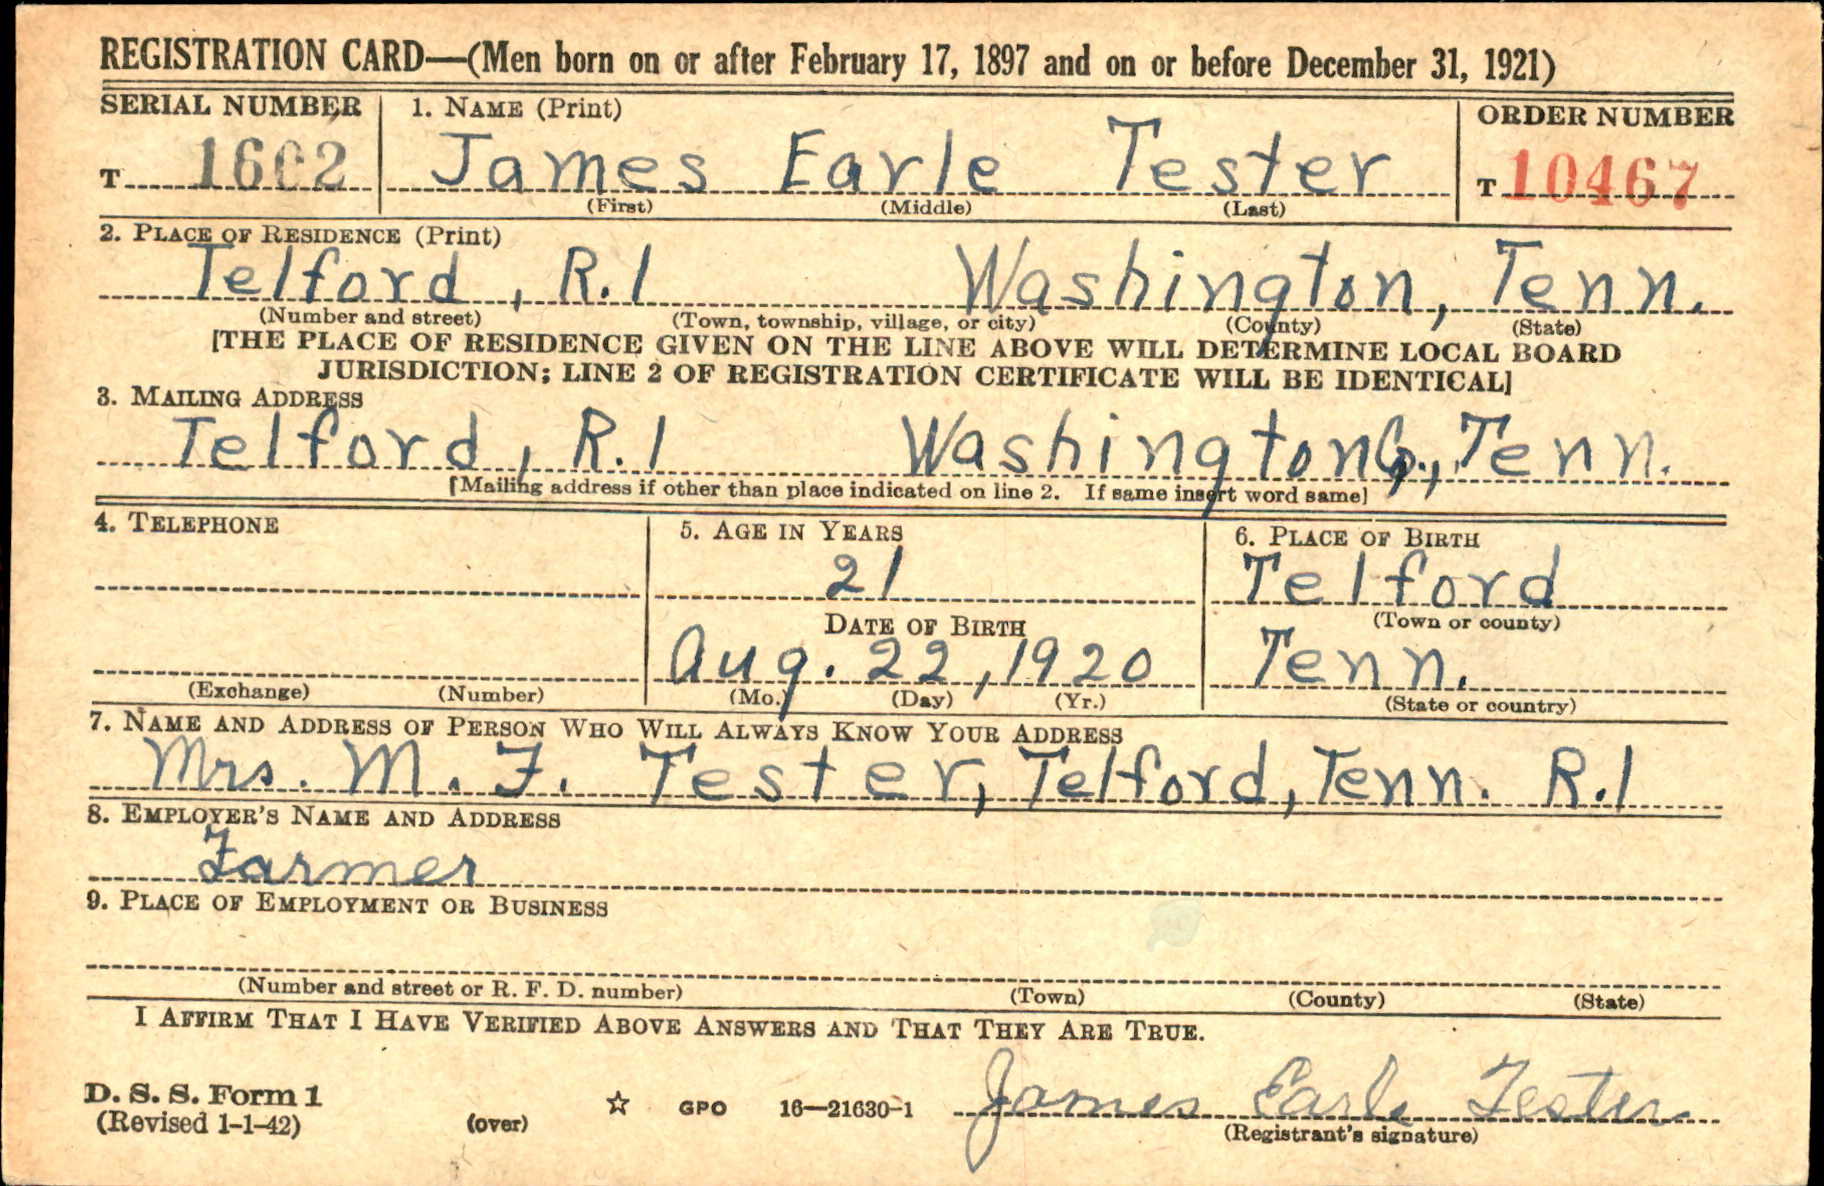 REGISTRATION CARD—(Men born on or after February 17, 1897 and on or before December 31, 1921)
SERIAL NUMBER 1. NAME (Print) ORDER NUMBER
T 1602 James Earle Tester T 10467
(First) (Middle) (Last)
2. PLACE OF RESIDENCE (Print)
Telford, R.1 Washington, Tenn.
(Number and street) (Town, township, village, or city) (County) (State)
[THE PLACE OF RESIDENCE GIVEN ON THE LINE ABOVE WILL DETERMINE LOCAL BOARD
JURISDICTION; LINE 2 OF REGISTRATION CERTIFICATE WILL BE IDENTICAL]
3. MAILING ADDRESS
Telford, R.1 Washington Co., Tenn.
[Mailing address if other than place indicated on line 2. If same insert word same]
4. TELEPHONE 5. AGE IN YEARS 6. PLACE OF BIRTH
21 Telford
DATE OF BIRTH (Town or county)
Aug. 22, 1920 Tenn.
(Exchange) (Number) (Mo.) (Day) (Yr.) (State or country)
7. NAME AND ADDRESS OF PERSON WHO WILL ALWAYS KNOW YOUR ADDRESS
Mrs. M. F. Tester, Telford, Tenn. R.1
8. EMPLOYER'S NAME AND ADDRESS
Farmer
9. PLACE OF EMPLOYMENT OR BUSINESS
(Number and street or R. F. D. number) (Town) (County) (State)
I AFFIRM THAT I HAVE VERIFIED ABOVE ANSWERS AND THAT THEY ARE TRUE.
D. S. S. Form 1
(Revised 1-1-42) (over) ☆ GPO 16—21630-1 James Earle Tester
(Registrant's signature)